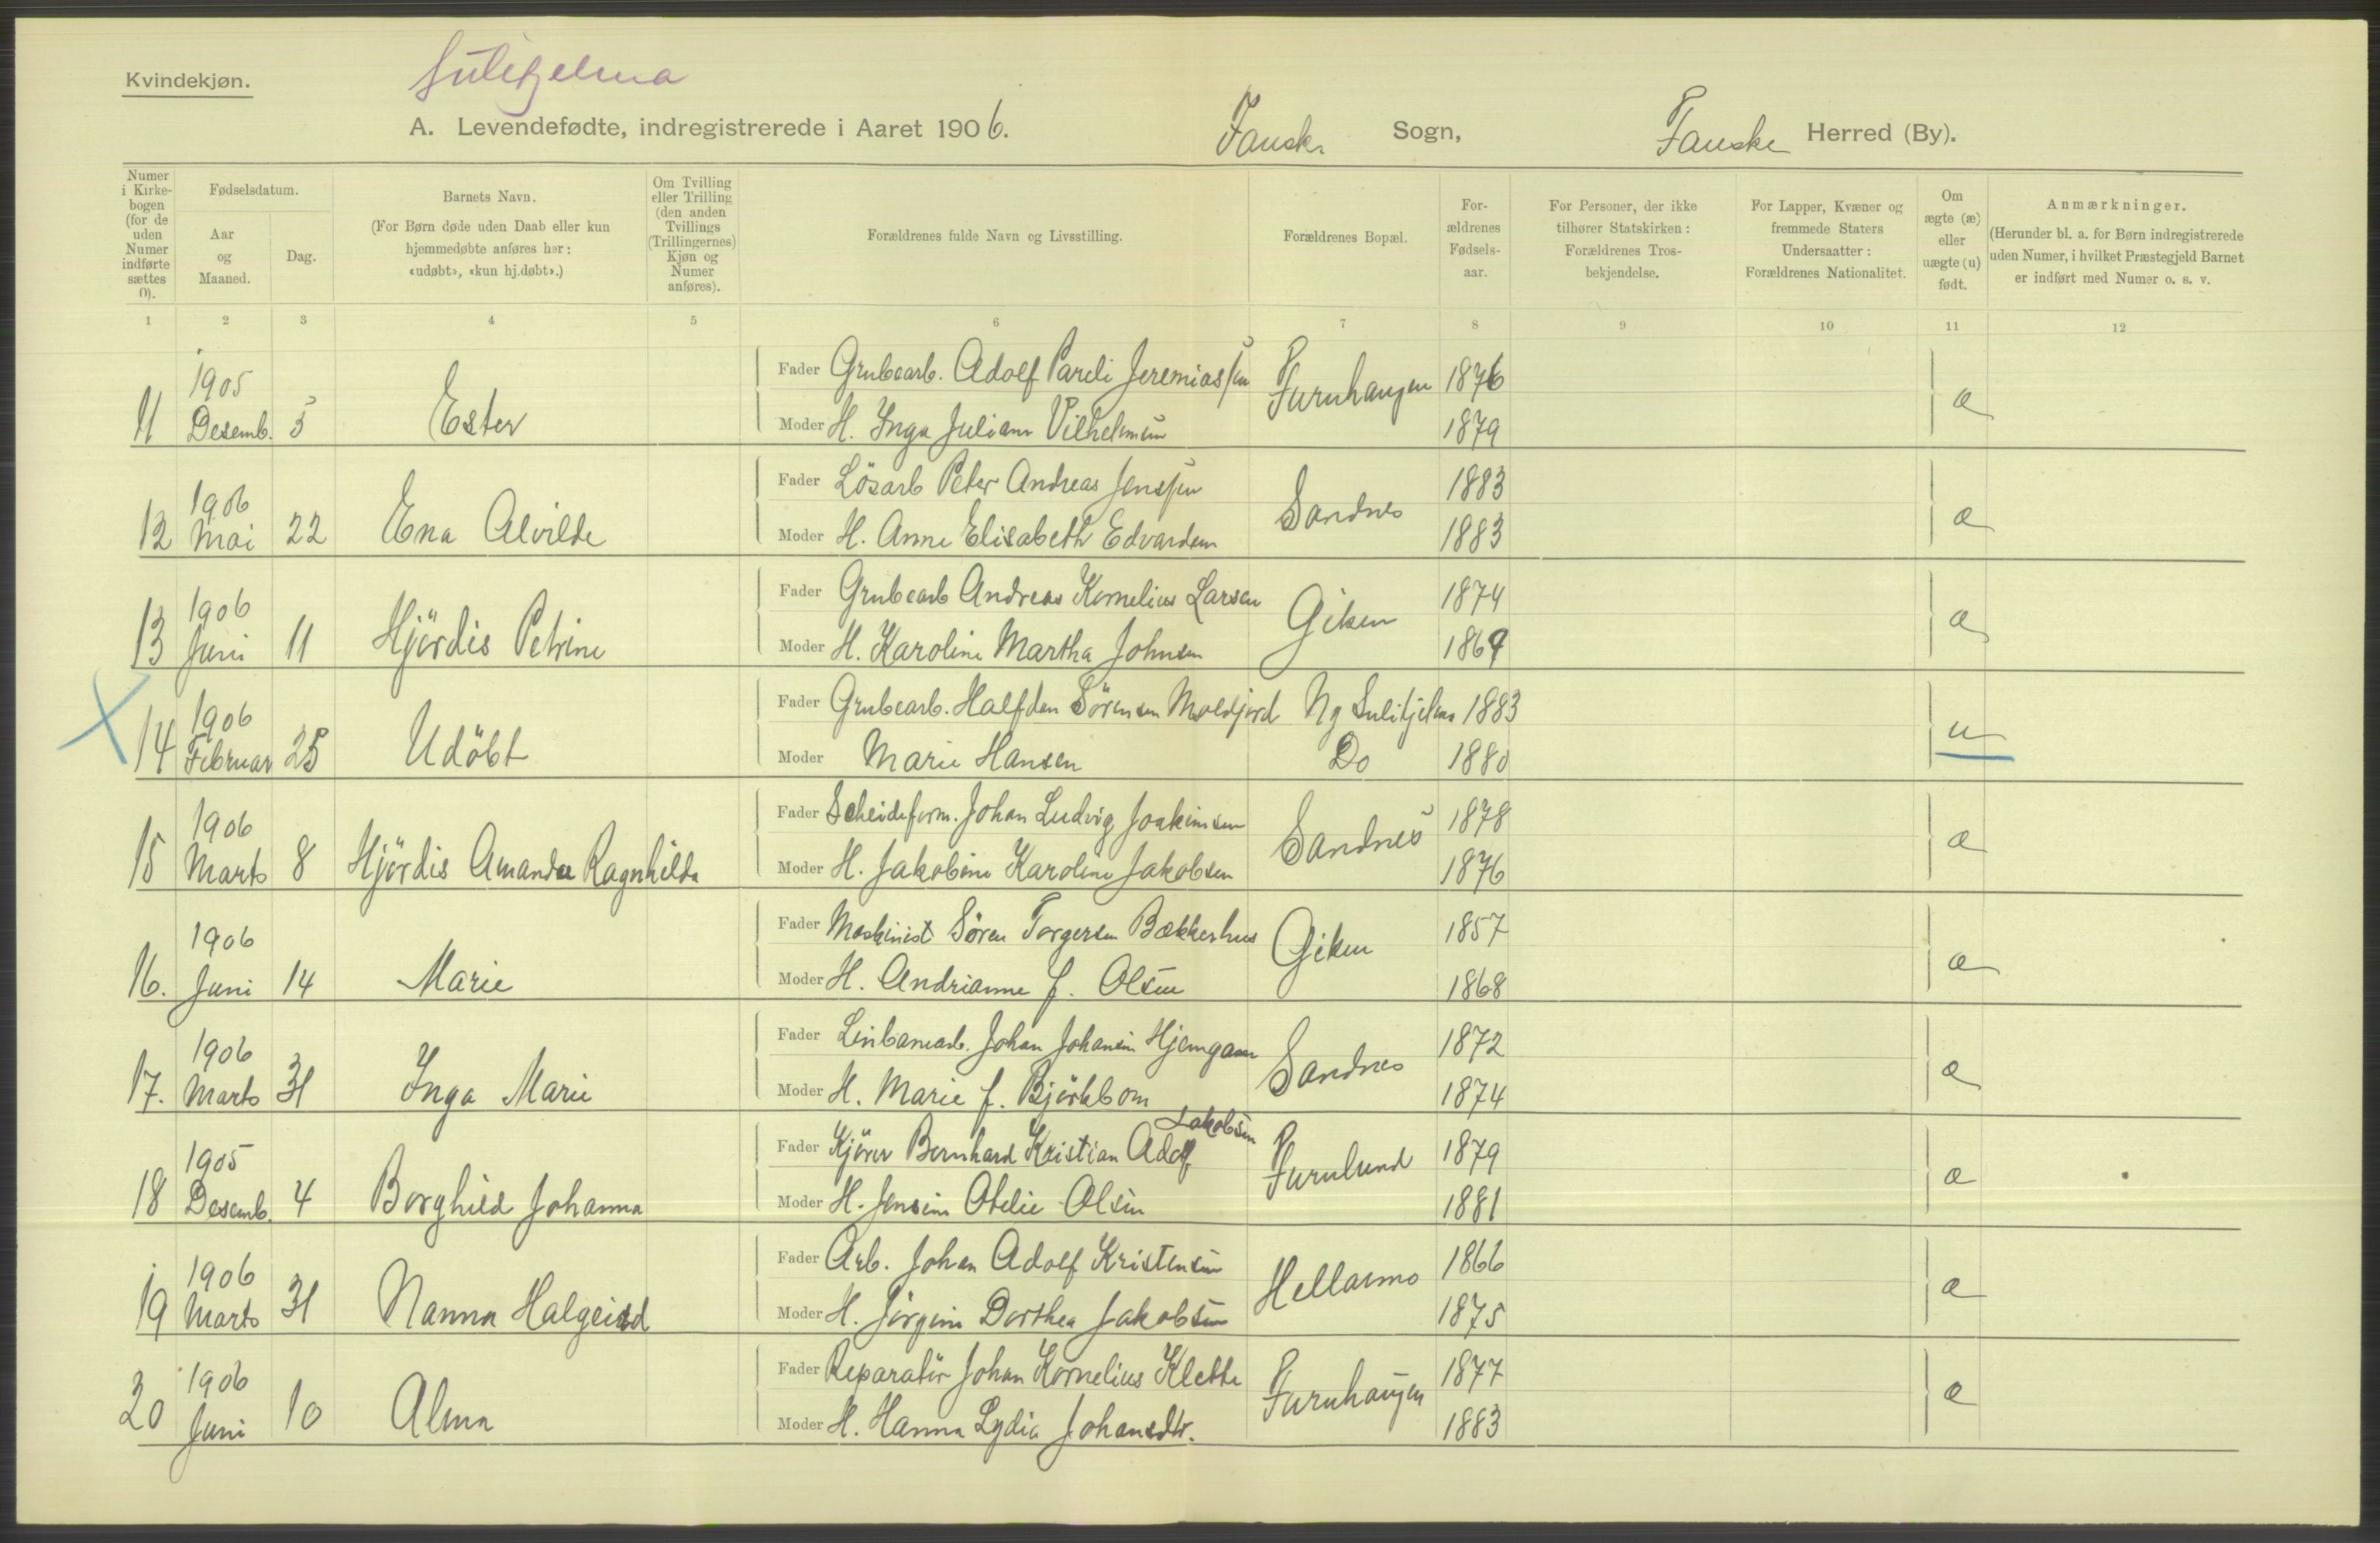 Kvindekjøn.
Sulitjelma
A. Levendefødte, indregistrerede i Aaret 1906.
Fauske Sogn,
Fauske Herred (By).
Numer i Kirkebogen (for de uden Numer indførte sættes 0).
Fødselsdatum.
Aar og Maaned.
Dag.
Barnets Navn.
(For Børn døde uden Daab eller kun hjemmedøbte anføres her: «udøbt», «kun hj.døbt».)
Om Tvilling eller Trilling (den anden Tvillings (Trillingernes) Kjøn og Numer anføres).
Forældrenes fulde Navn og Livsstilling.
Forældrenes Bopæl.
Forældrenes Fødselsaar.
For Personer, der ikke tilhører Statskirken: Forældrenes Trosbekjendelse.
For Lapper, Kvæner og fremmede Staters Undersaatter: Forældrenes Nationalitet.
Om ægte (æ) eller uægte (u) født.
Anmærkninger.
(Herunder bl. a. for Børn indregistrerede uden Numer, i hvilket Præstegjeld Barnet er indført med Numer o. s. v.
1 2 3 4 5 6 7 8 9 10 11 12
11 1905 Desemb. 5 Ester
Fader Grubearb. Adolf Pareli Jeremiassen Furuhaugen 1876 æ
Moder H. Inga Juliane Vilhelmsen 1879
12 1906 Mai 22 Ena Alvilde
Fader Lösarb Peter Andreas Jenssen Sandnes 1883 æ
Moder H. Anne Elisabeth Edvardsen 1883
13 1906 Juni 11 Hjördis Petrine
Fader Grubearb Andreas Kornelius Larsen Giken 1874 æ
Moder H. Karoline Martha Johnsen 1869
14 1906 Februar 25 Udöbt
Fader Grubearb. Halfdan Sörensen Moldjord Ny Sulitjelma 1883 u
Moder Marie Hansen Do 1880
15 1906 Marts 8 Hjördis Amanda Ragnhilda
Fader Scheideform. Johan Ludvig Joakimsen Sandnes 1878 æ
Moder H. Jakobine Karoline Jakobsen 1876
16. 1906 Juni 14 Marie
Fader Maskinist Sören Torgersen Bækkerhus Giken 1857 æ
Moder H. Andrianne f. Olsen 1868
17. 1906 Marts 31 Inga Marie
Fader Linbanearb. Johan Johansen Hjemgam Sandnes 1872 æ
Moder H. Marie f. Björkbom 1874
18 1905 Desemb. 4 Borghild Johanna
Fader Kjörer Bernhard Kristian Adolf Jakobsen Furulund 1879 æ
Moder H. Jensine Otelie Olsen 1881
19 1906 Marts 31 Nanna Halgerd
Fader Arb. Johan Adolf Kristensen Hellarmo 1866 æ
Moder H. Jörgine Dorthea Jakobsen 1875
20 1906 Juni 10 Alma
Fader Reparatör Johan Kornelius Klette Furuhaugen 1877 æ
Moder H. Hanna Lydia Johansdtr. 1883